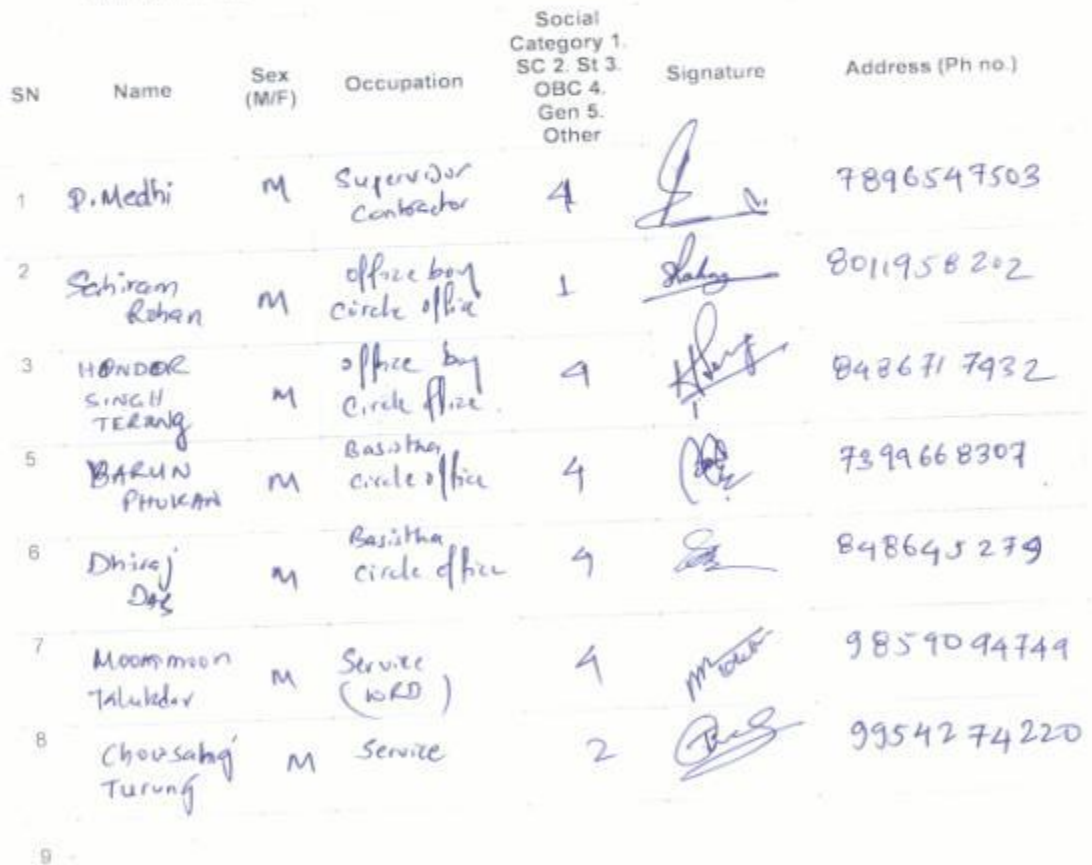 SN Name Sex (M/F) Occupation Social Category 1. SC 2. St 3. OBC 4. Gen 5. Other Signature Address (Ph no.)
1 P. Medhi M Supervisor Contractor 4 7896547503
2 Sahiram Rohan M office boy circle office 1 8011958202
3 HONDOR SINGH TERANG M office boy Circle ffice 4 8486717932
5 BARUN PHUKAN M Basistha circle office 4 7399668307
6 Dhiraj DAS M Basistha circle office 4 848645279
7 Moonmoon Talukdar M Service (WRD) 4 9859094749
8 Chousang Turung M Service 2 9954274220
9